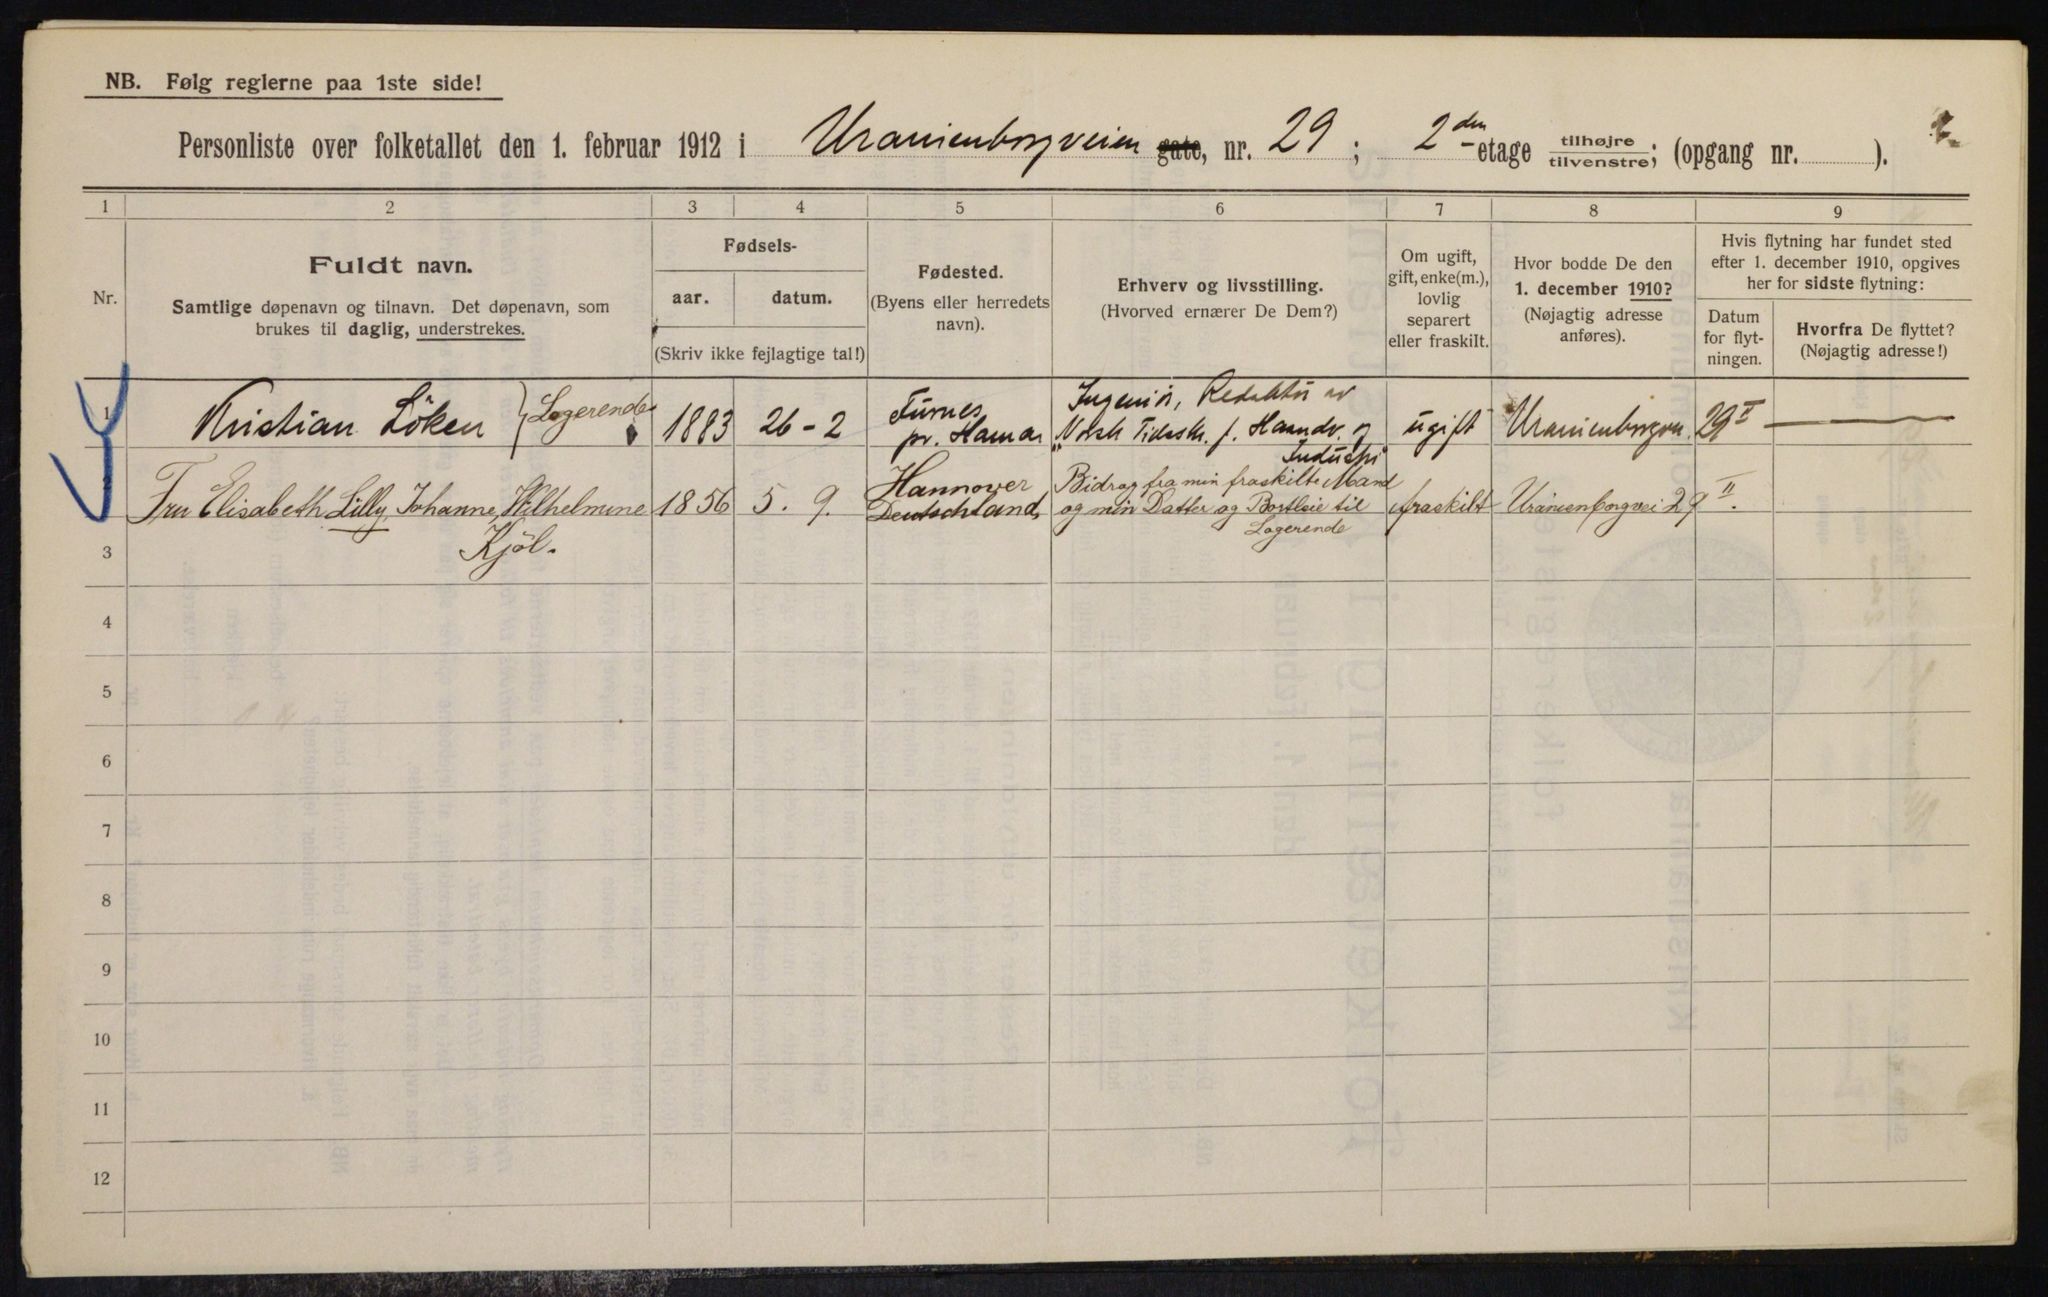 NB. Følg reglerne paa 1ste side!
Personliste over folketallet den 1. februar 1912 i Uranienborgveien gate, nr. 29; 2den etage tilhøjre tilvenstre; (opgang nr. ).
1 2 3 4 5 6 7 8 9
Nr.
Fuldt navn.
Samtlige døpenavn og tilnavn. Det døpenavn, som
brukes til daglig, understrekes.
Fødsels-
aar. datum.
(Skriv ikke fejlagtige tal!)
Fødested.
(Byens eller herredets
navn).
Erhverv og livsstilling.
(Hvorved ernærer De Dem?)
Om ugift,
gift, enke(m.),
lovlig
separert
eller fraskilt.
Hvor bodde De den
1. december 1910?
(Nøjagtig adresse
anføres).
Hvis flytning har fundet sted
efter 1. december 1910, opgives
her for sidste flytning:
Datum
for flyt-
ningen.
Hvorfra De flyttet?
(Nøjagtig adresse!)
1
Kristian Löken } Logerende
1883 26-2
Furnes
pr. Hamar
Ingeniör, Redaktör av
"Norsk Tidsskr. f. Haandv. og
Industri"
ugift
Uranienborgvn. 29 II
2
Fru Elisabeth Lilly, Johanne, Wilhelmine
Kjöl.
1856 5. 9.
Hannover
Deutschland
Bidrag fra min fraskilte Mand
og min Datter og Bortleie til
Logerende
fraskilt
Uranienborgvei 29 II.
3
4
5
6
7
8
9
10
11
12